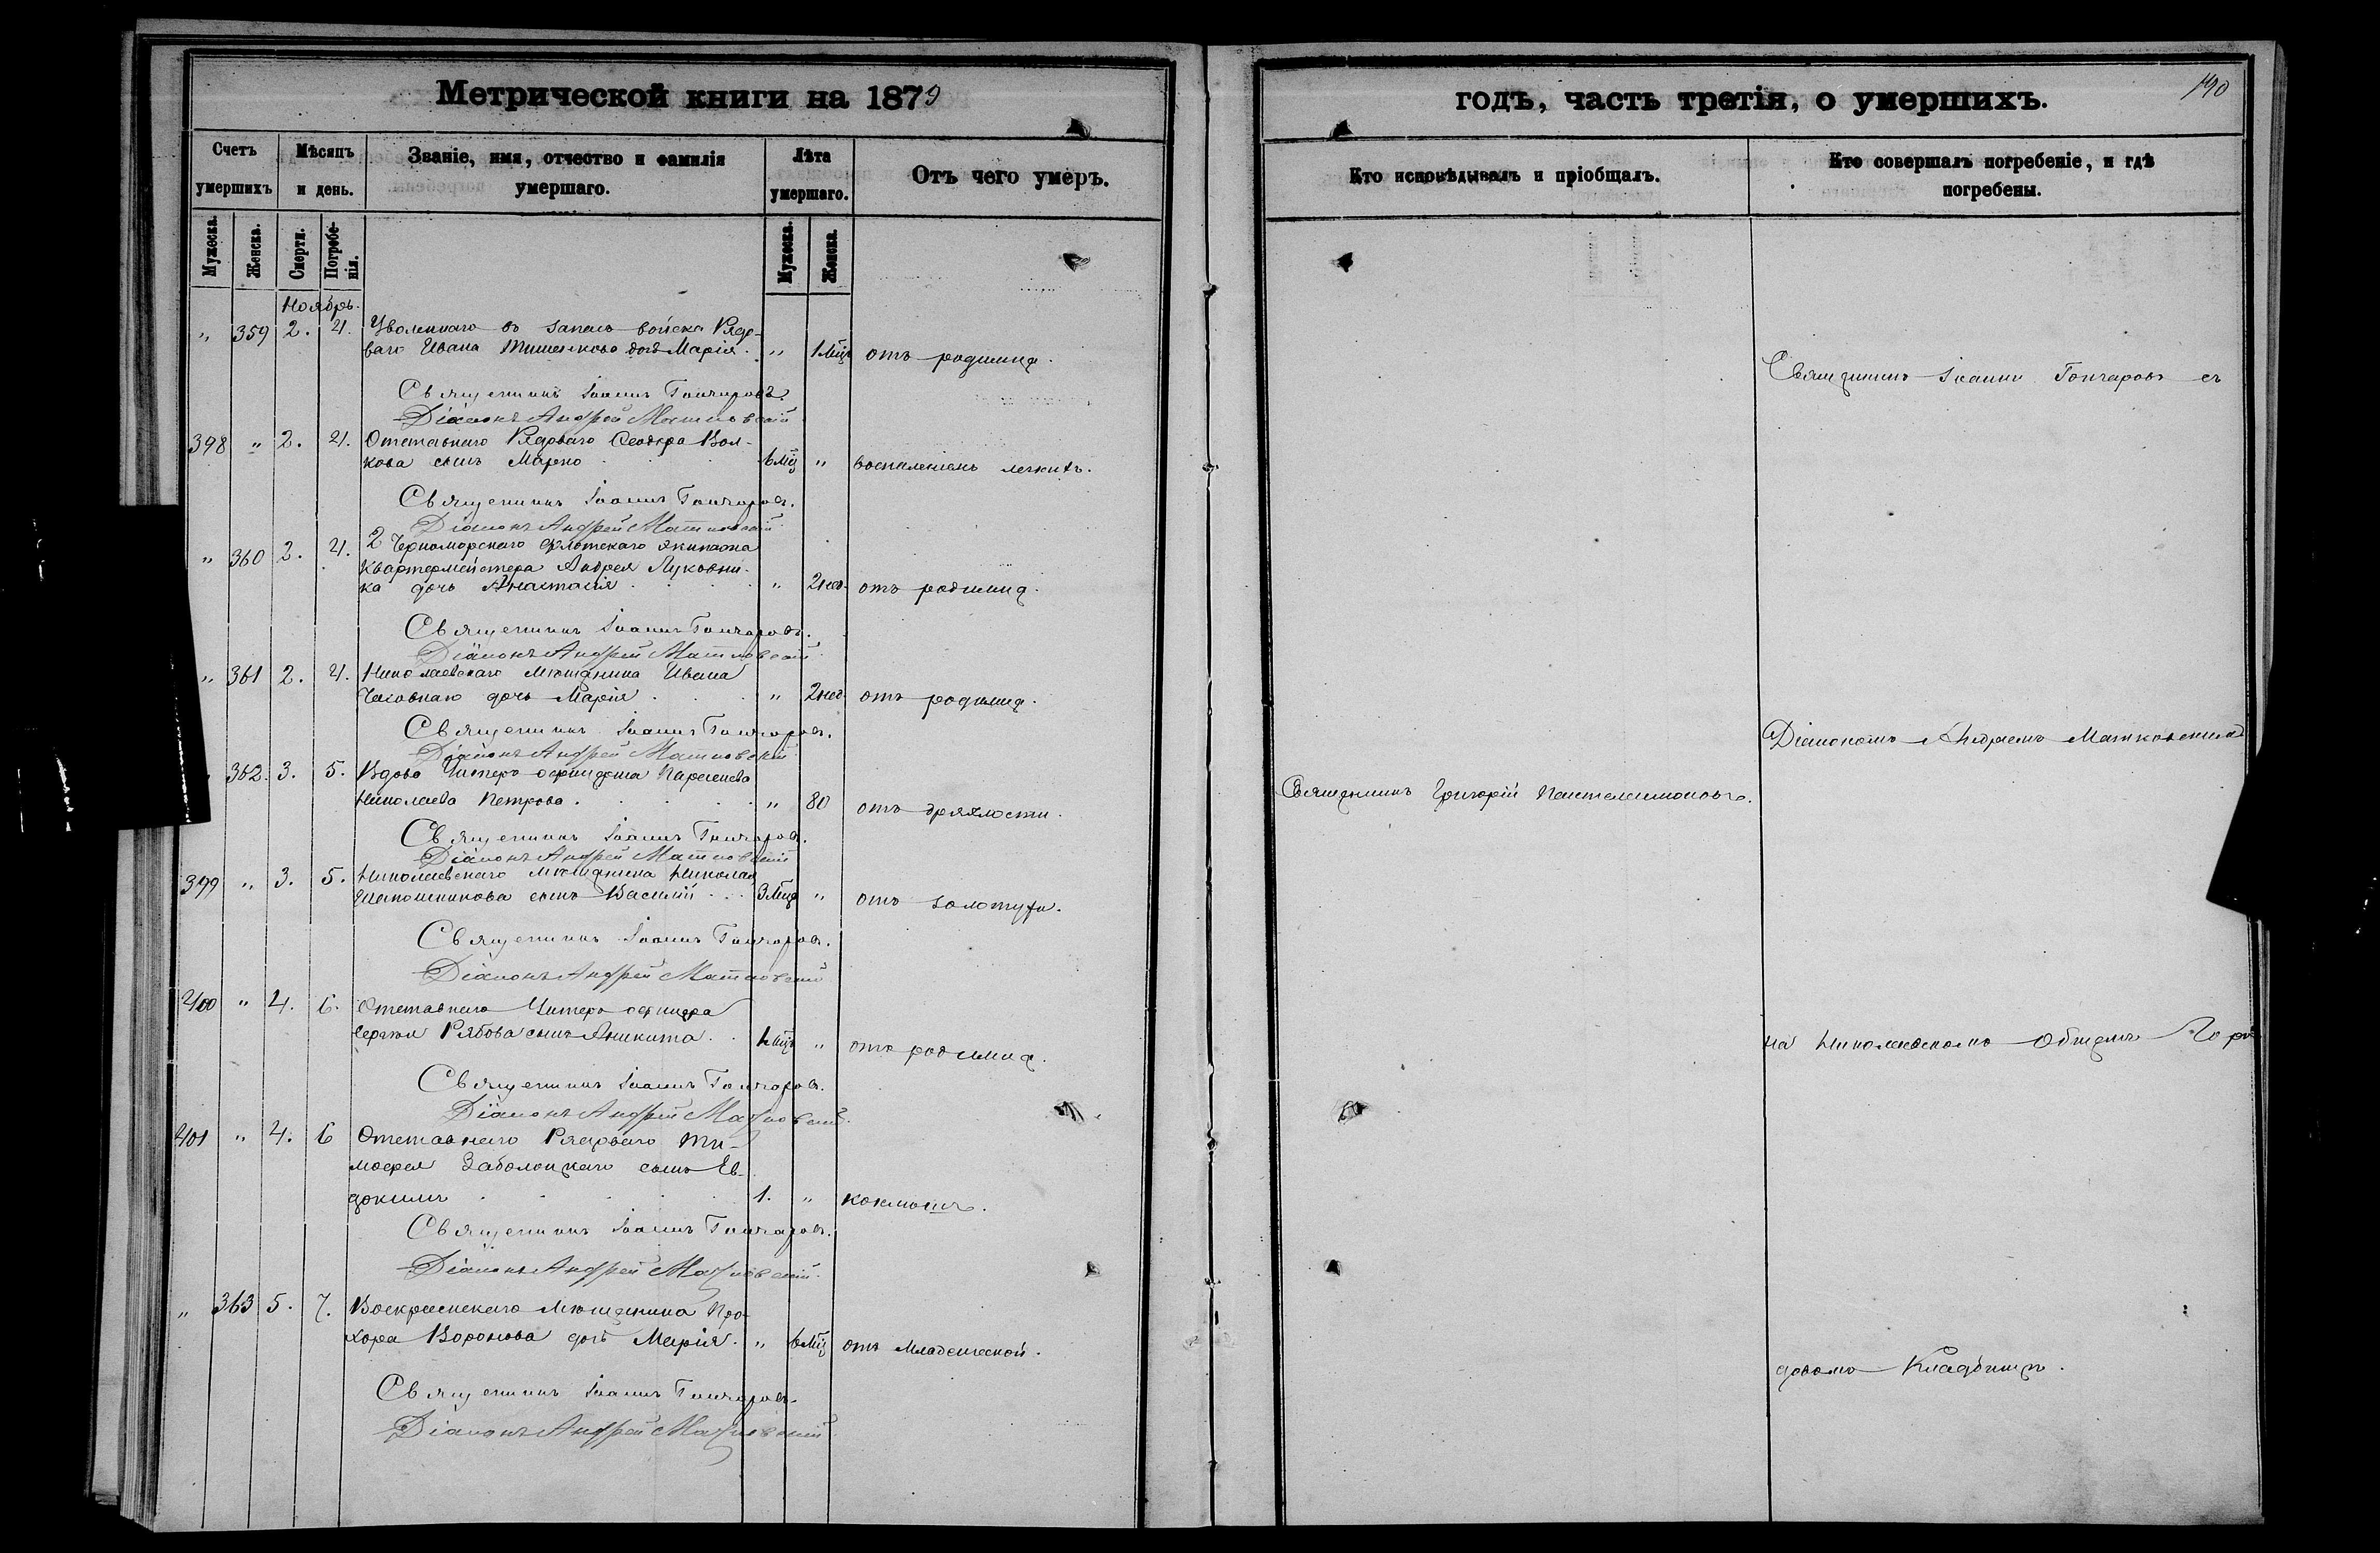 Метрической книги на 1879
годъ, часть третія, о умершихъ.
190
Счетъ умершихъ
Мѣсяцъ и день.
Званіе, имя, отчество и фамилія умершаго.
Лѣта умершаго.
Отъ чего умеръ.
Кто исповѣдывалъ и пріобщалъ.
Кто совершалъ погребеніе, и гдѣ погребены.
Мужеска. Женска. Смерти. Погребенія. Мужеска. Женска.
Ноябрь.
" 359 2. 4. Уволеннаго въ запасъ войска Рядо-
ваго Ивана Тимченкова дочь Марія. " 1 Мцъ отъ родимца.
Священникъ Іоаннъ Гончаровъ.
Діаконъ Андрей Матковскій
398 " 2. 4. Отставнаго Рядоваго Ѳеодора Вол-
кова сынъ Марко 6 Мц " воспаленіемъ легкихъ.
Священникъ Іоаннъ Гончаровъ.
Діаконъ Андрей Матковскій
" 360 2. 4. 2 Черноморскаго флотскаго экипажа
Квартермейстера Андрея Луковни-
ка дочь Анастасія " 2 нед. отъ родимца.
Священникъ Іоаннъ Гончаровъ.
Діаконъ Андрей Матковскій
" 361 2. 4. Николаевскаго Мѣщанина Ивана
дочь Марія " 2 нед отъ родимца.
Священникъ Іоаннъ Гончаровъ.
Діаконъ Андрей Матковскій
362. 3. 5. Вдова Унтеръ офицерша
Николаева Петрова. " 80 отъ дряхлости.
Священникъ Іоаннъ Гончаровъ.
Діаконъ Андрей Матковскій
399 " 3. 5. Николаевскаго Мѣщанина Николая
Шапошникова сынъ Василій 3 Мца " отъ золотухи.
Священникъ Іоаннъ Гончаровъ.
Діаконъ Андрей Матковскій
400 " 4. 6. Отставнаго Унтеръ офицера
Сергѣя Рябова сынъ Аникита. 1 Мцъ " отъ родимца.
Священникъ Іоаннъ Гончаровъ.
Діаконъ Андрей Матковскій
401 " 4. 6 Отставнаго Рядоваго Ти-
мофея Заболоцкаго сынъ Ев-
докимъ 1. " коклюшъ.
Священникъ Іоаннъ Гончаровъ.
Діаконъ Андрей Матковскій
" 363 5. 7. Воскресенскаго Мѣщанина Про-
хора Воронова дочь Марія. " 6 Мц отъ Младенческой.
Священникъ Іоаннъ Гончаровъ.
Діаконъ Андрей Матковскій
Священникъ Григорій Пантелеимоновъ.
Священникъ Іоаннъ Гончаровъ съ
Діакономъ Андреемъ Матковскимъ
на Николаевскомъ Общемъ Горо
довомъ Кладбищѣ.